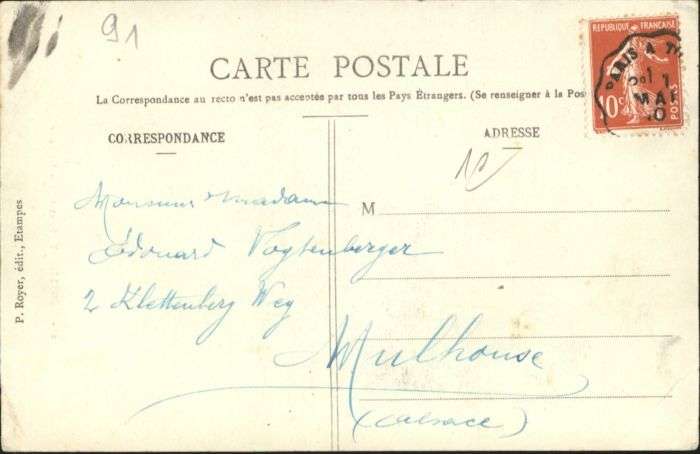 91
CARTE POSTALE
La Correspondance au recto n'est pas acceptée par tous les Pays Étrangers. (Se renseigner à la Pos
REPUBLIQUE FRANÇAISE
10c
POSTES
PARIS A
MAI
CORRESPONDANCE
ADRESSE
10
M
Monsieur Madame
Édouard Vogtenberger
2 Klettenberg Weg
Mulhouse
(Alsace)
P. Royer, édit., Etampes